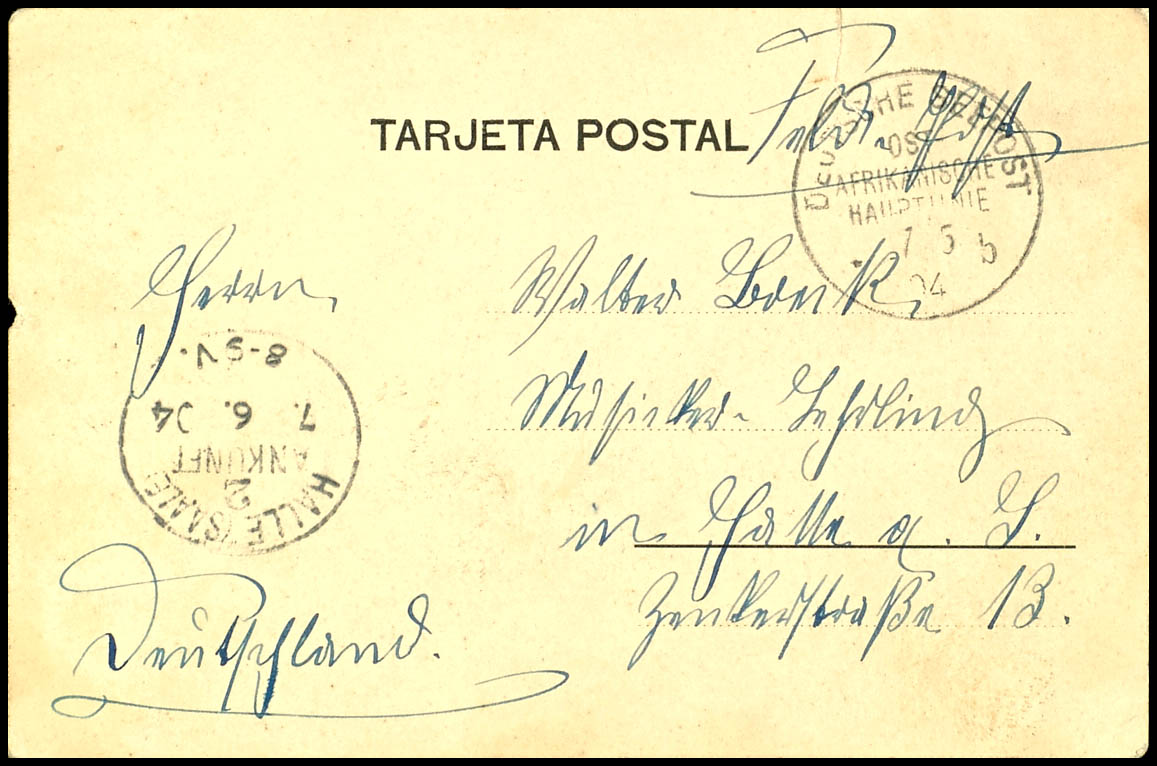 TARJETA POSTAL
Feldpost
DEUTSCHE SEEPOST
OST
AFRIKANISCHE
HAUPTLINIE
7 5 b
04
Herrn
Walter
Musiker-Lehrling
in Halle a. S.
Zenkerstraße 13.
Deutschland.
HALLE (SAALE)
2
ANKUNFT
7. 6. 04
8-9V.